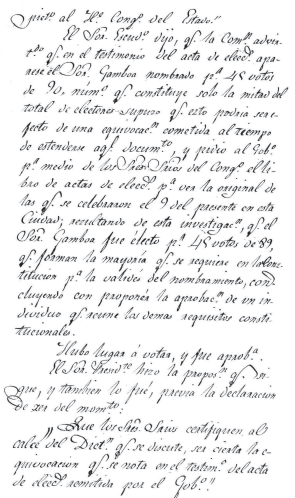 pieto al H.e Cong.o del Estado."
El Sor. Escud.o dijo, q.e la Com.on advir-
t.do q.e en el testimonio del acta de elecc.n apa-
rece el Sor. Gamboa nombrado p.r 45 votos
de 90, núm.o q.e constituye solo la mitad del
total de electores supuso q.e esto podria ser e-
fecto de una equivocac.n cometida al tiempo
de estenderse aq.l docum.to, y pidió al Gob.o
p.r medio de los Sres. Srios del Cong.o el li-
bro de actas de elecc.n p.a ver la original de
las q.e se celebraron el 9 del presente en esta
Ciudad; resultando de esta investigac.n, q.e el
Sor. Gamboa fue electo p.r 45 votos de 89,
q.e forman la mayoría q.e se requiere en la Cons
titucion p.a la validés del nombramiento, con-
cluyendo con proponer la aprobac.n de un in-
dividuo q.e reune los demas requisitos consti-
tucionales.
Hubo lugar á votar, y fue aprob.a
El Sor. Presid.te hizo la propos.n q.e si
gue, y tambien lo fué, previa la declaracion
de ser del mom.to:
"Que los Sres. Srios certifiquen al
calce del Dict.n q.e se discute, ser cierta la e-
quivocacion q.e se nota en el testim.o del acta
de elecc.n remitida por el Gob.o"